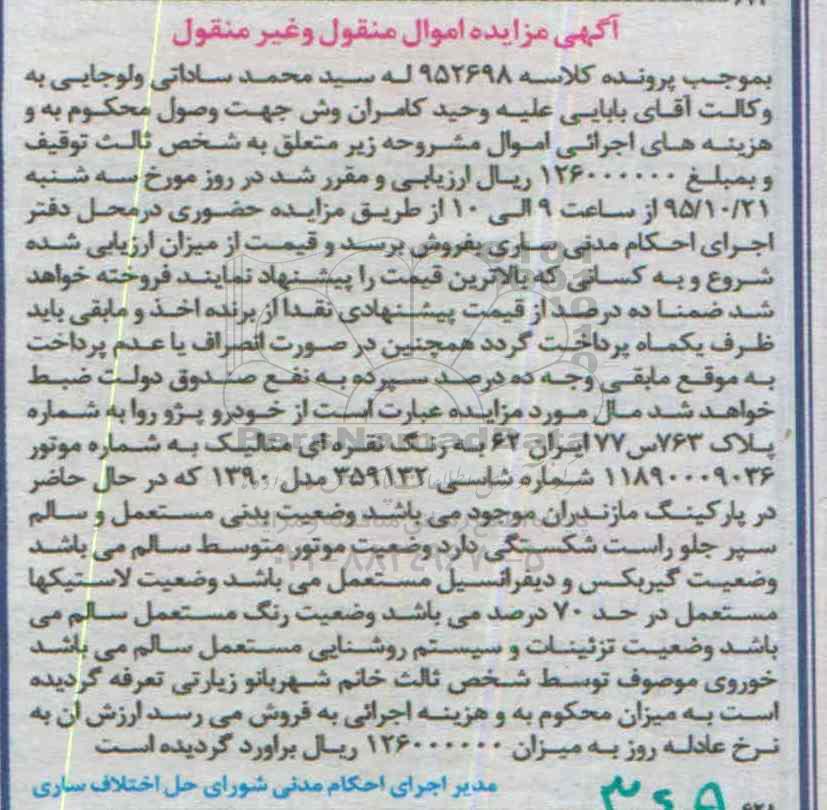 آگهی مزایده اموال منقول وغیر منقول
بموجب پرونده کلاسه ۹۵۲۶۹۸ له سید محمد ساداتی ولوجایی به
وکالت آقای بابایی علیه وحید کامران وش جهت وصول محکوم به و
هزینه های اجرائی اموال مشروحه زیر متعلق به شخص ثالث توقیف
و بمبلغ ۱۲۶۰۰۰۰۰۰ ریال ارزیابی و مقرر شد در روز مورخ سه شنبه
۹۵/۱۰/۲۱ از ساعت ۹ الی ۱۰ از طریق مزایده حضوری درمحل دفتر
اجرای احکام مدنی ساری بفروش برسد و قیمت از میزان ارزیابی شده
شروع و به کسانی که بالاترین قیمت را پیشنهاد نمایند فروخته خواهد
شد ضمنا ده درصد از قیمت پیشنهادی نقدا از برنده اخذ و مابقی باید
ظرف یکماه پرداخت گردد همچنین در صورت انصراف یا عدم پرداخت
به موقع مابقی وجه ده درصد سپرده به نفع صندوق دولت ضبط
خواهد شد مال مورد مزایده عبارت است از خودرو پژو روا به شماره
پلاک ۷۶۳س۷۷ ایران ۶۲ به رنگ نقره ای متالیک به شماره موتور
۱۱۸۹۰۰۰۹۰۳۶ شماره شاسی ۳۵۹۱۳۲ مدل ۱۳۹۰ که در حال حاضر
در پارکینگ مازندران موجود می باشد وضعیت بدنی مستعمل و سالم
سپر جلو راست شکستگی دارد وضعیت موتور متوسط سالم می باشد
وضعیت گیربکس و دیفرانسیل مستعمل می باشد وضعیت لاستیکها
مستعمل در حد ۷۰ درصد می باشد وضعیت رنگ مستعمل سالم می
باشد وضعیت تزئینات و سیستم روشنایی مستعمل سالم می باشد
خوروی موصوف توسط شخص ثالث خانم شهربانو زیارتی تعرفه گردیده
است به میزان محکوم به و هزینه اجرائی به فروش می رسد ارزش آن به
نرخ عادله روز به میزان ۱۲۶۰۰۰۰۰۰ ریال براورد گردیده است
مدیر اجرای احکام مدنی شورای حل اختلاف ساری